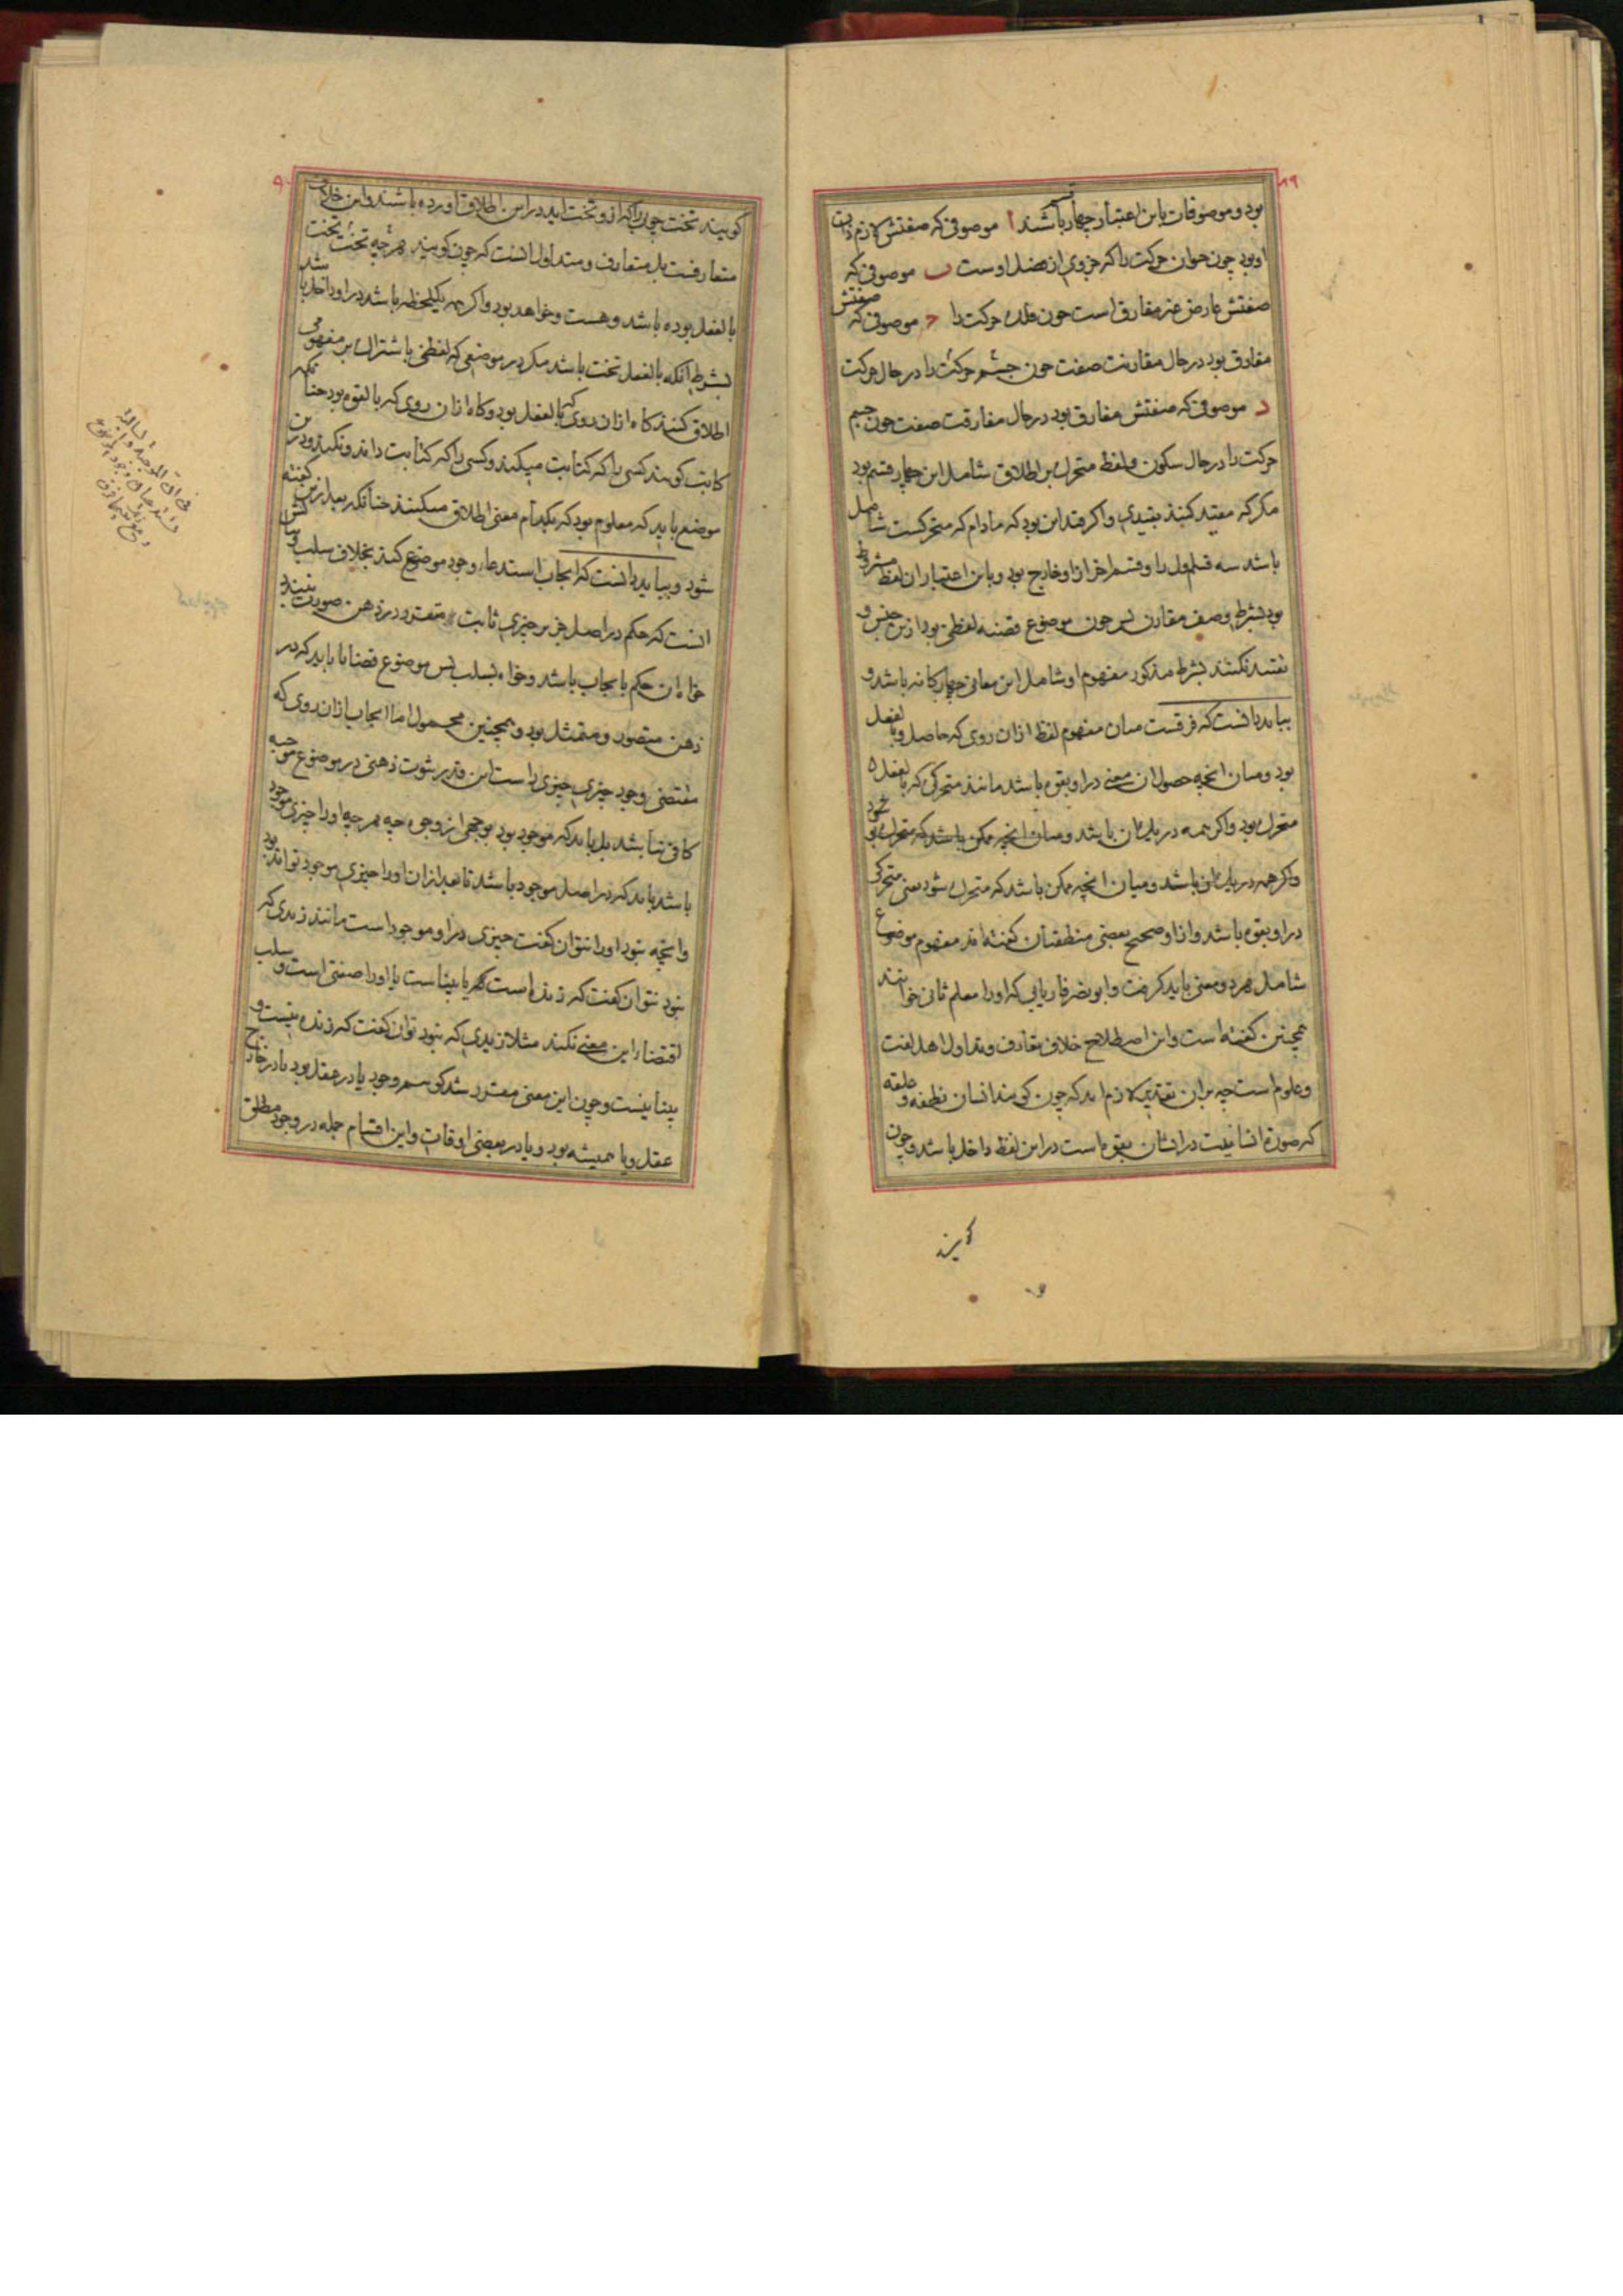 ۸۹
بود و موصوفات باین اعتبار چهار باشند ا موصوفی که صفتش لازم ذات
او بود چون حیوان حرکت را که جزوی از فصل اوست ب موصوفی که
صفتش عارض غیر مفارق است چون فلک حرکت را ج موصوفی که صفتش
مفارق بود در حال مقارنت صفت چون جسم حرکت را در حال حرکت
د موصوفی که صفتش مفارق بود در حال مفارقت صفت چون جسم
حرکت را در حال سکون و لفظ متحرک بر اطلاق شامل این چهار قسم بود
مکر که مقید کنند بقیدی و اکر قید این بود که مادام که متحرکست شامل
باشد سه قسم اول را و قسم اخر ازو خارج بود و باین اعتبار ان لفظ مشروط
بود بشرط وصف مقارن پس چون موضوع قضیه لفظی بود ازین جنس و
تقیید نکنند بشرط مذکور مفهوم او شامل این معانی چهارکانه باشد و
بباید دانست که فرقست میان مفهوم لفظ ازان روی که حاصل و بالفعل
بود و میان انچه حصول ان معنی در او بقوه باشد مانند متحرکی که بالفعل
متحرک بود و اکر همه در یک ان باشد و میان انچه ممکن باشد که متحرک بود
و اکر چه در یک ان باشد و میان انچه ممکن باشد که متحرک شود یعنی متحرکی
در او بقوه باشد و بعضی منطقیان کفته اند مفهوم موضوع
شامل هر دو معنی باید کرفت و ابو نصر فاریابی که او را معلم ثانی خوانند
همچنین کفته است و این اصطلاح خلاف تعارف و تداول اهل لغت
و علوم است چه بران تقدیر لازم اید که چون کویند انسان نطفه و علقه
که صورة انسانیت در ایشان بقوه است در این لفظ داخل باشد و چون
۹۰
کویند تخت چوبی را که ازو تخت اید در این اطلاق اورده باشند و این خلاف
متعارفست بل متعارف و متداول انست که چون کویند هر چه تختست تخت
بالفعل بوده باشد و هست و خواهد بود و اکر همه یک لحظه باشد در او داخل باشد
بشرط انکه بالفعل تخت باشد مکر در موضعی که لفظی باشتراک بر مفهومی
اطلاق کنند کاه ازان روی که بالفعل بود و کاه ازان روی که بالقوه بود چنانکه
کاتب کویند کسی را که کتابت میکند و کسی را که کتابت داند و نکند و در این
موضع باید که معلوم بود که بکدام معنی اطلاق میکنند چنانکه بعد ازین کفته
شود و بباید دانست که ایجاب استدعاء وجود موضوع کند بخلاف سلب
انست که حکم در اصل جز بر چیزی ثابت متقرر در ذهن صورت نبندد
خواه ان حکم بایجاب باشد و خواه بسلب پس موضوع قضایا باید که در
ذهن متصور و متمثل بود و همچنین محمول اما ایجاب ازان روی که
مقتضی وجود چیزی چیزی راست این قدر ثبوت ذهنی در موضوع موجبه
کافی نباشد بل باید که موجود بود بوجهی از وجوه چه هر چه او را چیزی موجود
باشد باید که در اصل موجود باشد تا بعد ازان او را چیزی موجود تواند بود
و انچه نبود او را نتوان کفت چیزی در او موجود است مانند زیدی که
نبود نتوان کفت که زنده است یا بیناست یا او را صفتی است و سلب
اقتضاء این معنی نکند مثلا زیدی که نبود توان کفت که زنده نیست و
بینا نیست و چون این معنی مقرر شد کوییم وجود یا در عقل بود یا در خارج
عقل و یا همیشه بود و یا در بعضی اوقات و این اقسام جمله در وجود مطلق